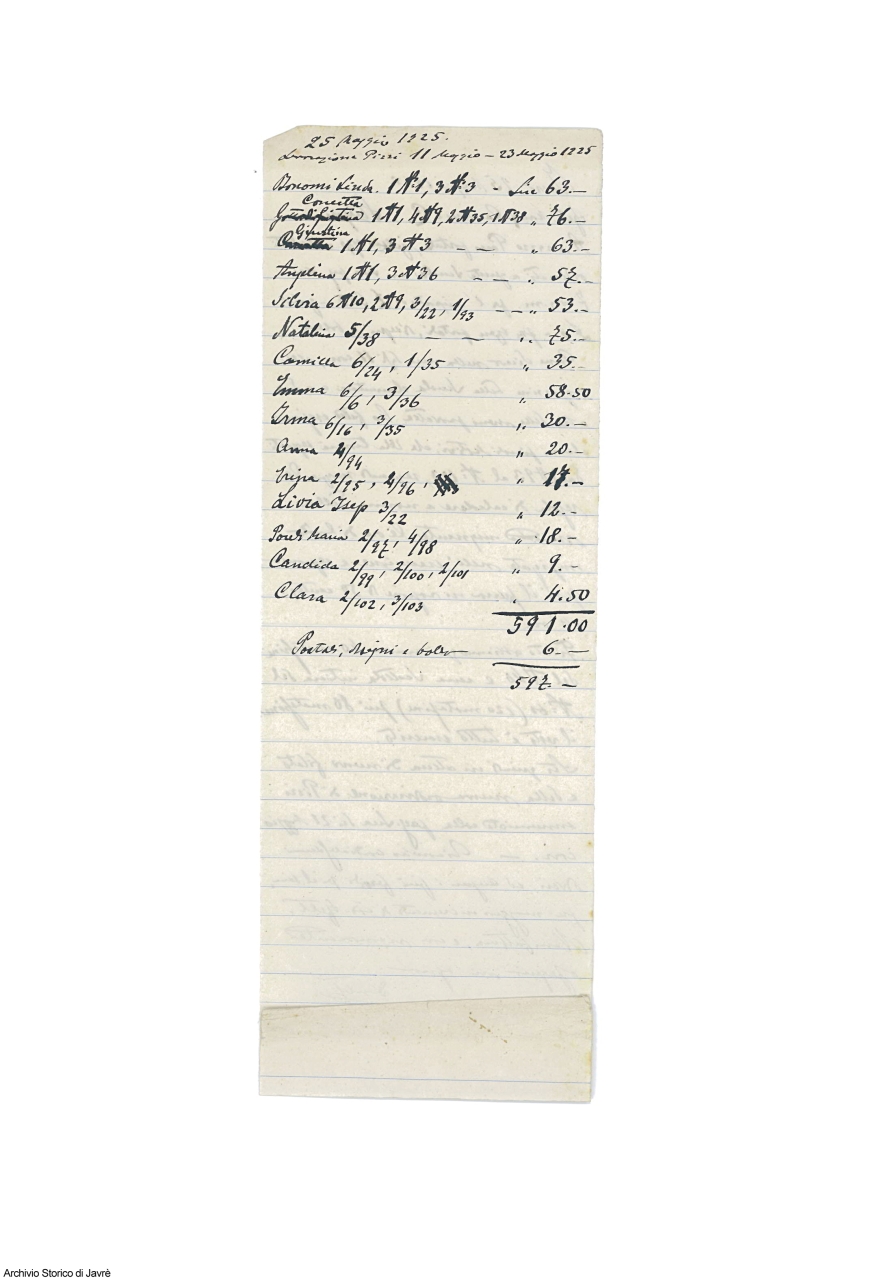 25 Maggio 1925.
Lavorazione Pizzi 11 Maggio – 23 Maggio 1925
Bonomi Linda. 1 N°1, 3 N°3 - Lire 63.—
Concetta
1 N1, 4 N9, 2 N35, 1 N38 „ 76.—
Giustina
1 N1, 3 N3 — — „ 63.—
Angelina 1 N1, 3 N36 — — „ 57.—
Silvia 6 N10, 2 N9, 3/22, 1/93 — — „ 53.—
Natalina 5/38 — — „ 75.—
Camilla 6/24, 1/35 „ 35.—
Emma 6/6, 3/36 „ 58.50
Irma 6/16, 3/35 „ 30.—
Anna 4/94 „ 20.—
2/95, 4/96, „ 17.—
Livia Isep 3/22 „ 12.—
Maria 2/97, 4/98 „ 18.—
Candida 2/99, 2/100, 2/101 „ 9.—
Clara 2/102, 3/103 „ 4.50
591.00
Postali, e 6.—
597.—
Archivio Storico di Javrè